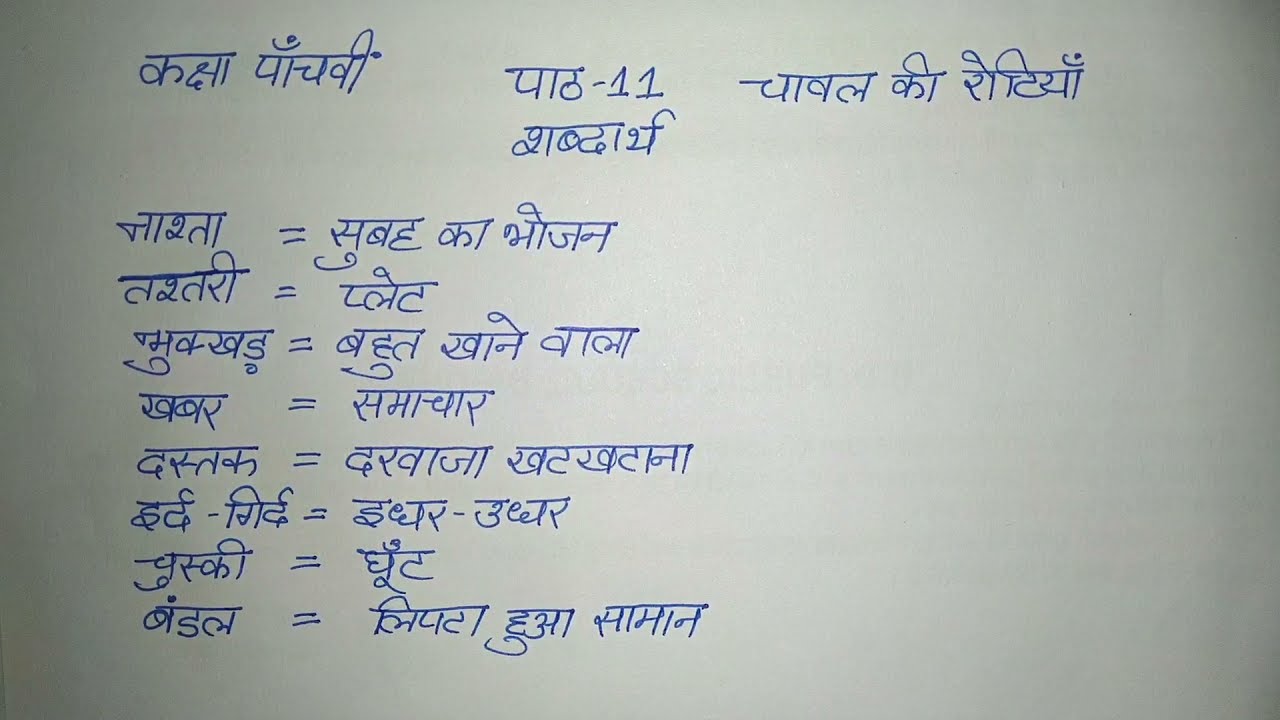 कक्षा पाँचवीं पाठ-11 चावल की रोटियाँ
शब्दार्थ
नाश्ता = सुबह का भोजन
तश्तरी = प्लेट
भुक्खड़ = बहुत खाने वाला
खबर = समाचार
दस्तक = दरवाजा खटखटाना
इर्द-गिर्द = इधर-उधर
चुस्की = घूँट
बंडल = लिपटा हुआ सामान